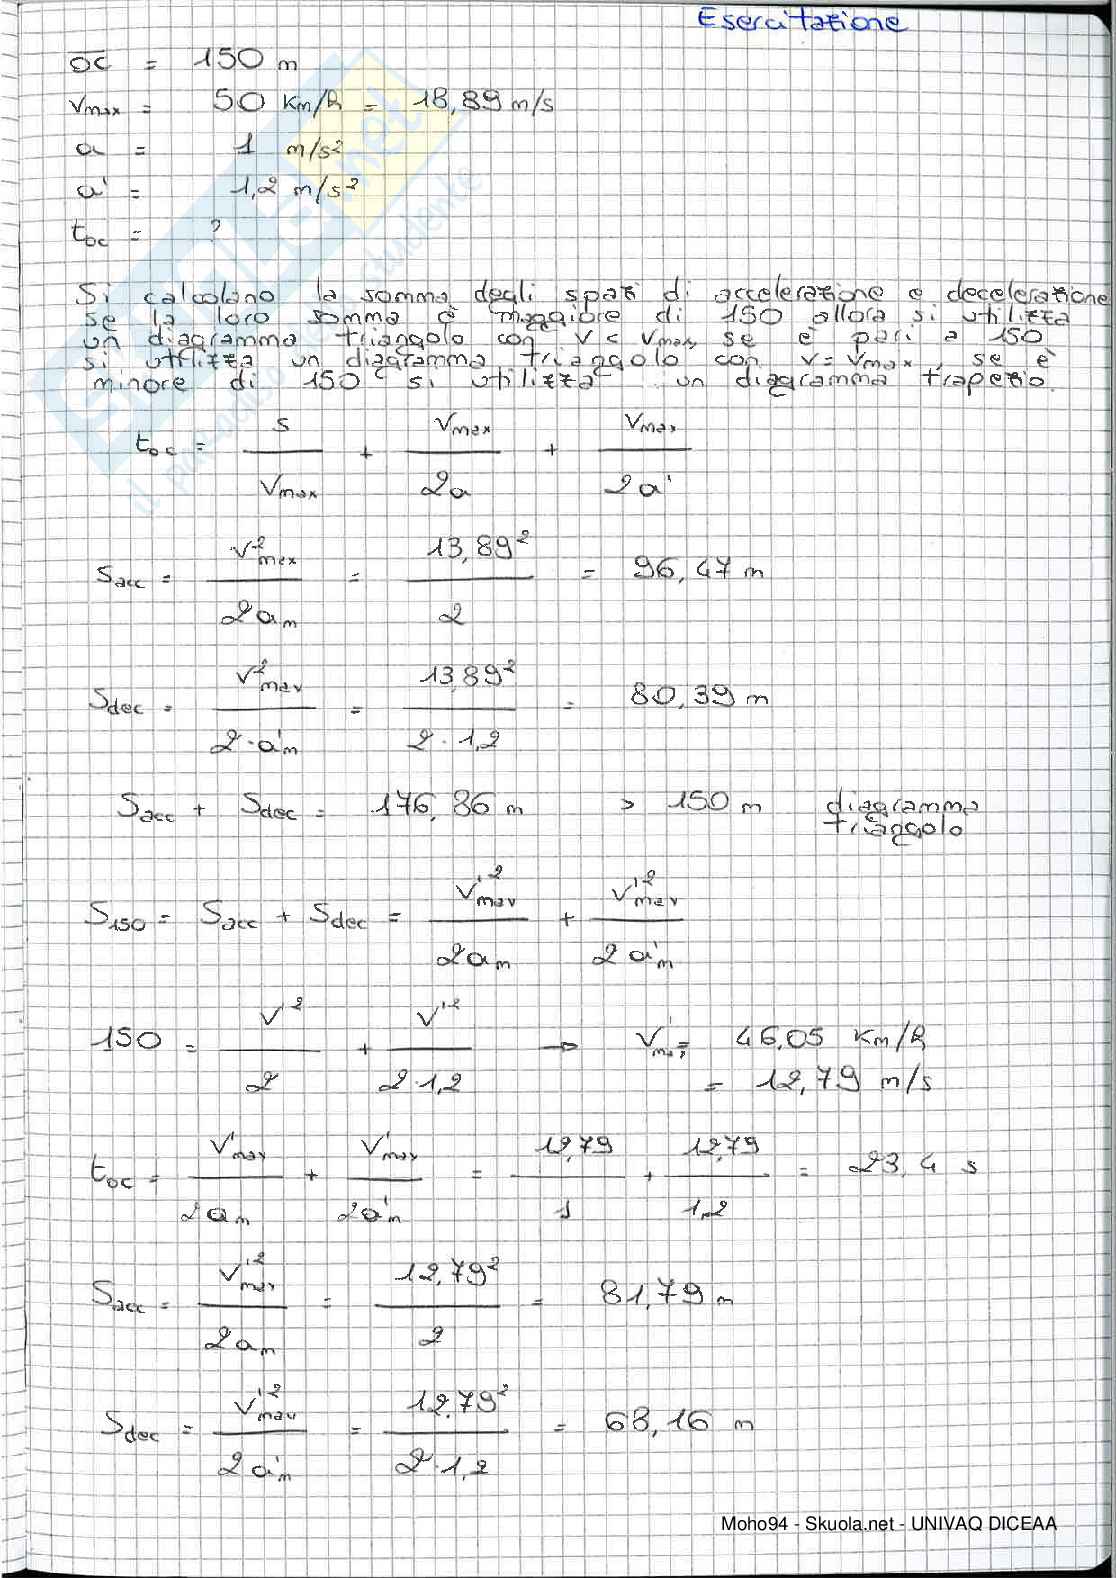 Esercitazione
OC = 150 m
Vmax = 50 Km/h = 18,89 m/s
a = 1 m/s²
a' = 1,2 m/s²
toc = ?
Si calcolano la somma degli spazi di accelerazione e decelerazione
se la loro somma è maggiore di 150 allora si utilizza
un diagramma triangolo con V < Vmax, se è pari a 150
si utilizza un diagramma triangolo con V = Vmax, se è
minore di 150 si utilizza un diagramma trapezio.
toc = S/Vmax + Vmax/2a + Vmax/2a'
Sacc = V²max/2am = 13,89²/2 = 96,47 m
Sdec = V²max/2·a'm = 13,89²/2·1,2 = 80,39 m
Sacc + Sdec = 176,86 m > 150 m diagramma
triangolo
S150 = Sacc + Sdec = V'²max/2am + V'²max/2a'm
150 = V'²/2 + V'²/2·1,2 → V'max = 46,05 Km/h
= 12,79 m/s
toc = V'max/2am + V'max/2a'm = 12,79/1 + 12,79/1,2 = 23,4 s
Sacc = V'²max/2am = 12,79²/2 = 81,79 m
Sdec = V'²max/2a'm = 12,79²/2·1,2 = 68,16 m
Moho94 - Skuola.net - UNIVAQ DICEAA